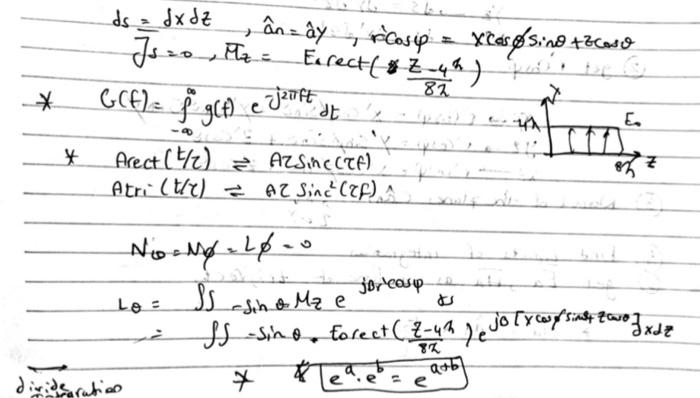 ds = dxdz , ân = ây , r'cosψ = x'cosϕ sinθ + z'cosθ
J̄s = 0 , M̄z = E₀rect( (z-4λ)/8λ )
* G(f) = ∫_{-∞}^{∞} g(t) e^{-j2πft} dt
x
4λ E₀
8λ z
* Arect(t/τ) ⇌ Aτ Sinc(τf)
Atri(t/τ) ⇌ Aτ Sinc²(τf)
Nθ = Nϕ = Lϕ = 0
Lθ = ∫∫ -sinθ Mz e^{jβr'cosψ} ds
= ∫∫ -sinθ . E₀rect( (z-4λ)/8λ ) e^{jβ[x'cosϕ'sinθ + z'cosθ]} dxdz
divide
* e^a . e^b = e^{a+b}